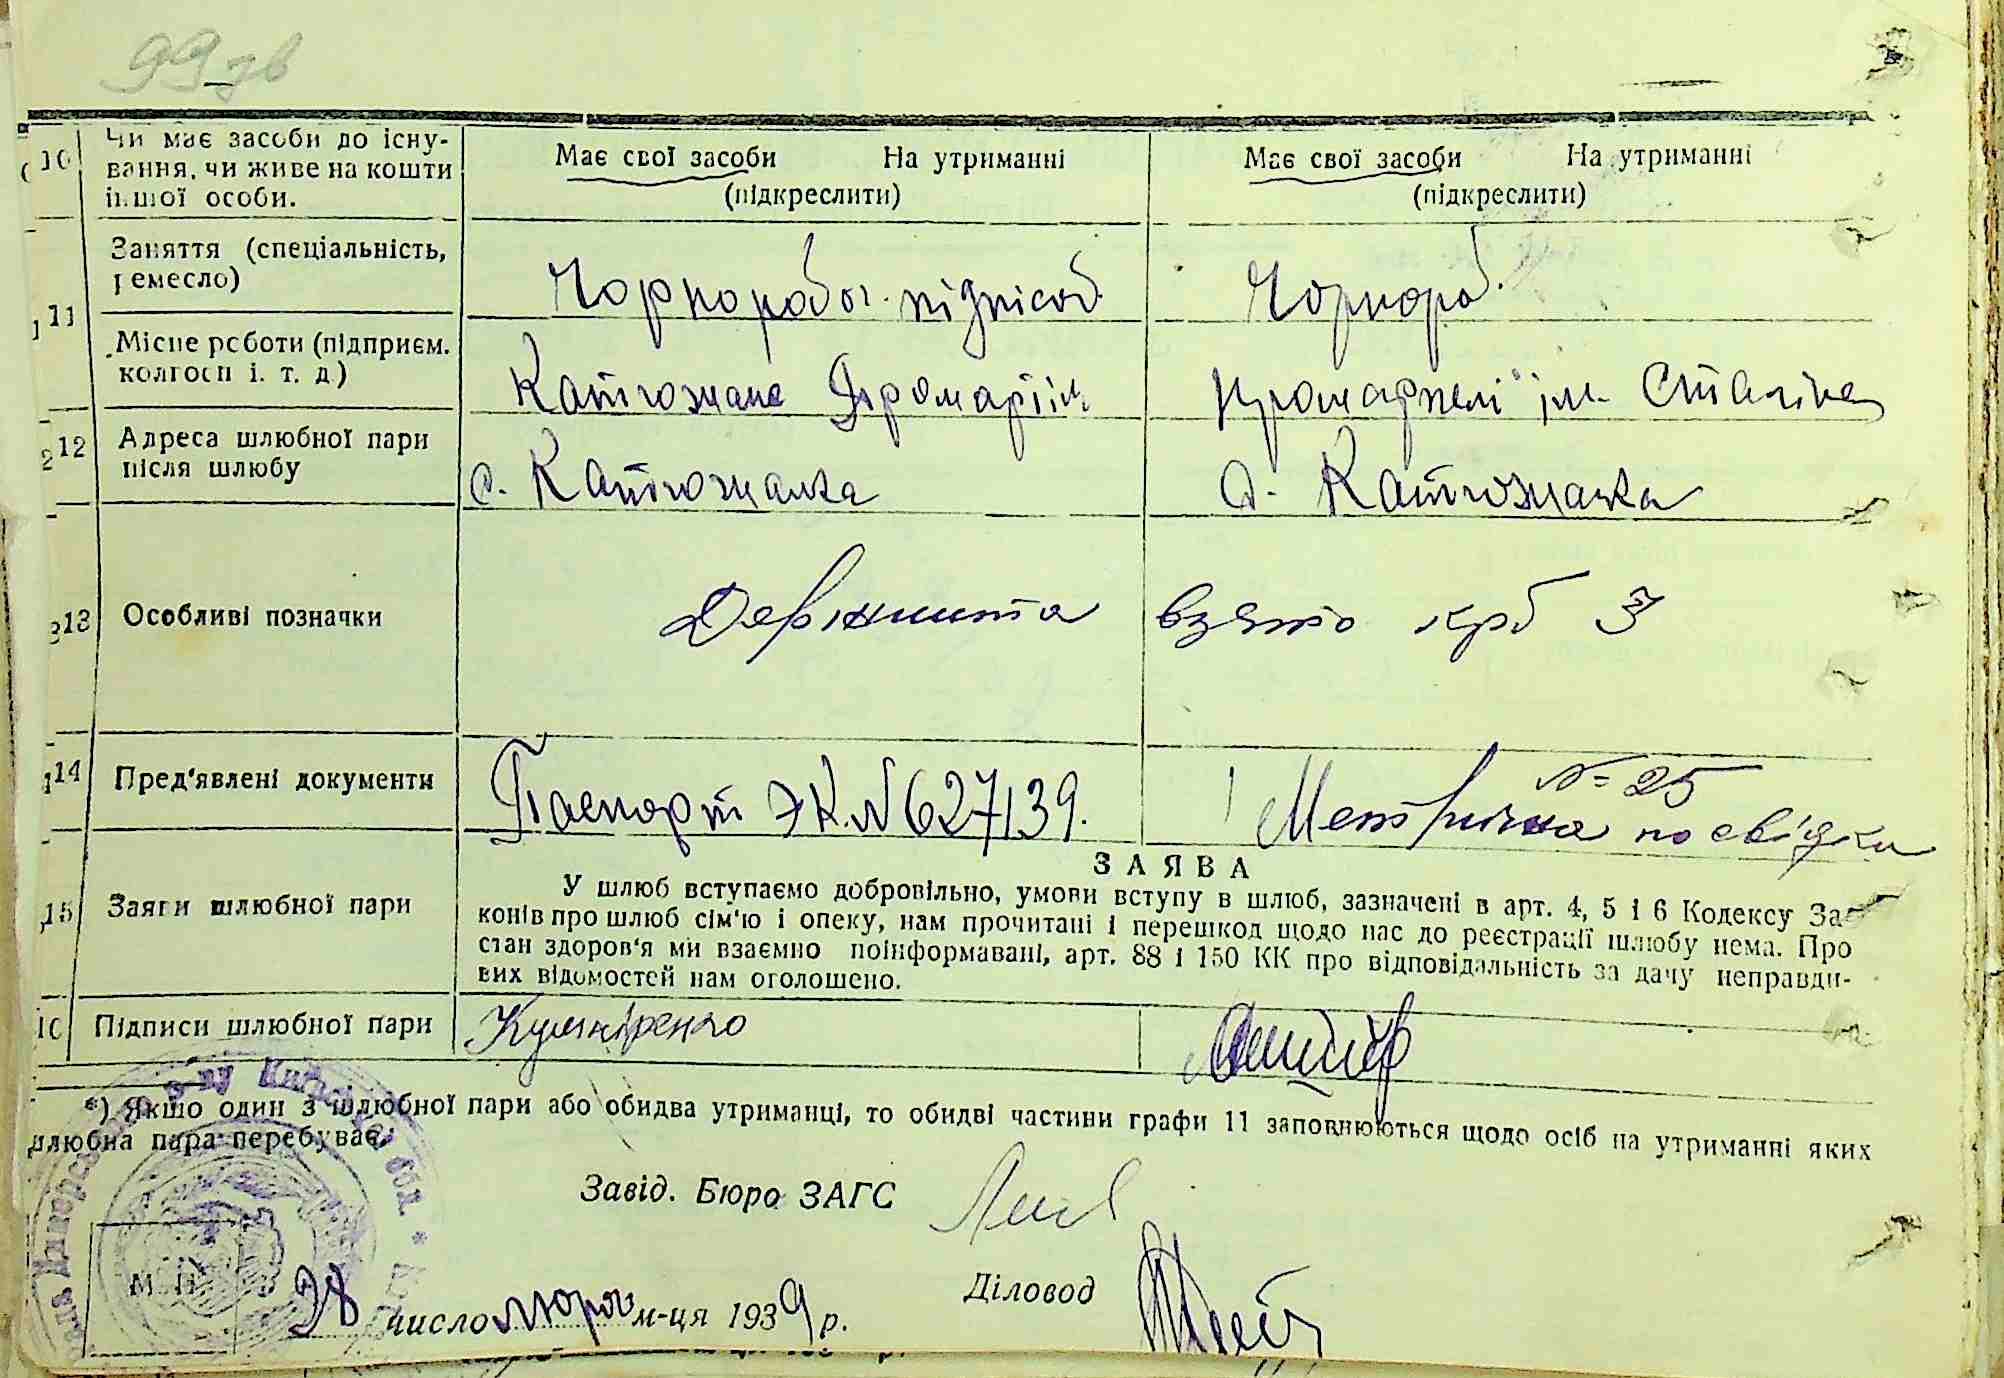 99 зв
10 Чи має засоби до існу-
вання, чи живе на кошти
іншої особи.
Має свої засоби На утриманні
(підкреслити)
Має свої засоби На утриманні
(підкреслити)
11 Заняття (спеціальність,
ремесло)
Чорнороб. підсоб.
Чорнороб.
Місце роботи (підприєм.
колгосп і. т. д.)
Катюжанс Промарт ім.
Промартелі ім. Сталіна
12 Адреса шлюбної пари
після шлюбу
с. Катюжанка
с. Катюжанка
13 Особливі позначки
Держмита взято крб 3
14 Пред'явлені документи
Паспорт ЭК. № 627139.
№ 25
Метрична посвідка
ЗАЯВА
15 Заяви шлюбної пари
У шлюб вступаємо добровільно, умови вступу в шлюб, зазначені в арт. 4, 5 і 6 Кодексу За-
конів про шлюб сім'ю і опеку, нам прочитані і перешкод щодо нас до реєстрації шлюбу нема. Про
стан здоров'я ми взаємно поінформавані, арт. 88 і 150 КК про відповідальність за дачу неправди-
вих відомостей нам оголошено.
16 Підписи шлюбної пари
*) Якщо один з шлюбної пари або обидва утриманці, то обидві частини графи 11 заповнюються щодо осіб на утриманні яких
шлюбна пара перебуває.
Завід. Бюро ЗАГС
М. П.
Діловод
28 число марта м-ця 1939 р.